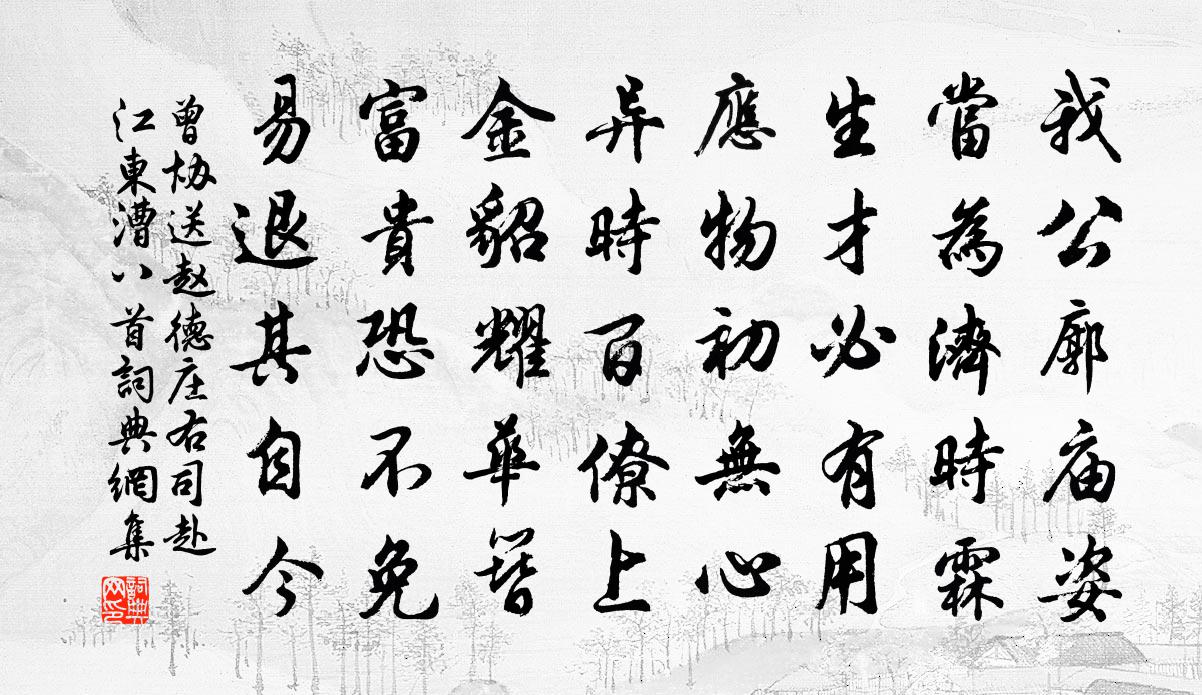 我公廓庙姿
當為濟時霖
生才必有用
應物初無心
异時百僚上
金貂耀華簪
富貴恐不免
易退其自今
曾协送赵德庄右司赴
江東漕八首詞典網集
詞典
网印